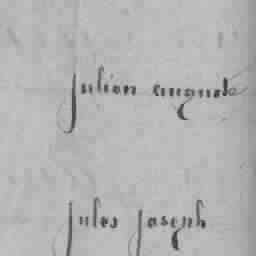 julien auguste
jules joseph